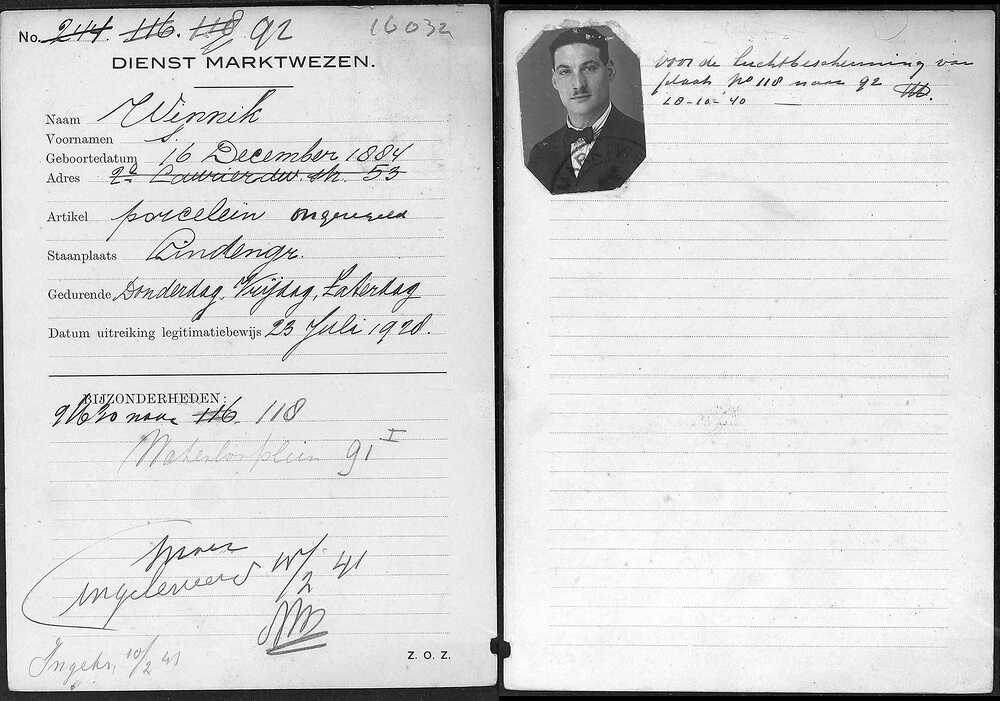 No. 244. 116. 118 92 16032
DIENST MARKTWEZEN.
Naam Winnik
Voornamen S.
Geboortedatum 16 December 1884
Adres 2e Laurierdw. str. 53
Artikel porcelein ongeregeld
Staanplaats Lindengr.
Gedurende Donderdag, Vrijdag, Zaterdag
Datum uitreiking legitimatiebewijs 23 Juli 1928.
BIJZONDERHEDEN:
naar 116. 118
Waterlooplein 91 I
ingeleverd 10/2 41
Ingetr. 10/2 41
Z. O. Z.
voor de luchtbescherming van
plaats no 118 naar 92
28-10-40